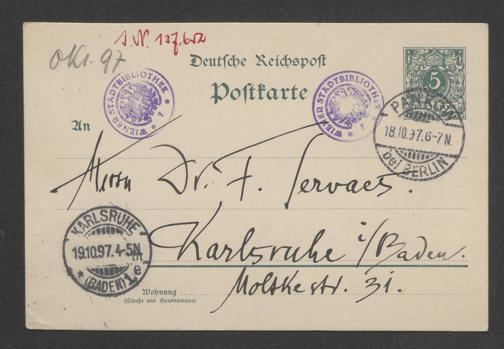 S.N. 137.652
Okt. 97
Deutsche Reichspost
Postkarte
5
WIENER STADTBIBLIOTHEK
WIENER STADTBIBLIOTHEK
PANKOW
18.10.97.6-7N.
bei BERLIN
An
Herrn Dr. F. Servaes.
KARLSRUHE
19.10.97.4-5N.
(BADEN) 1e
Karlsruhe i/Baden.
Moltkestr. 31.
Wohnung
(Straße und Hausnummer)